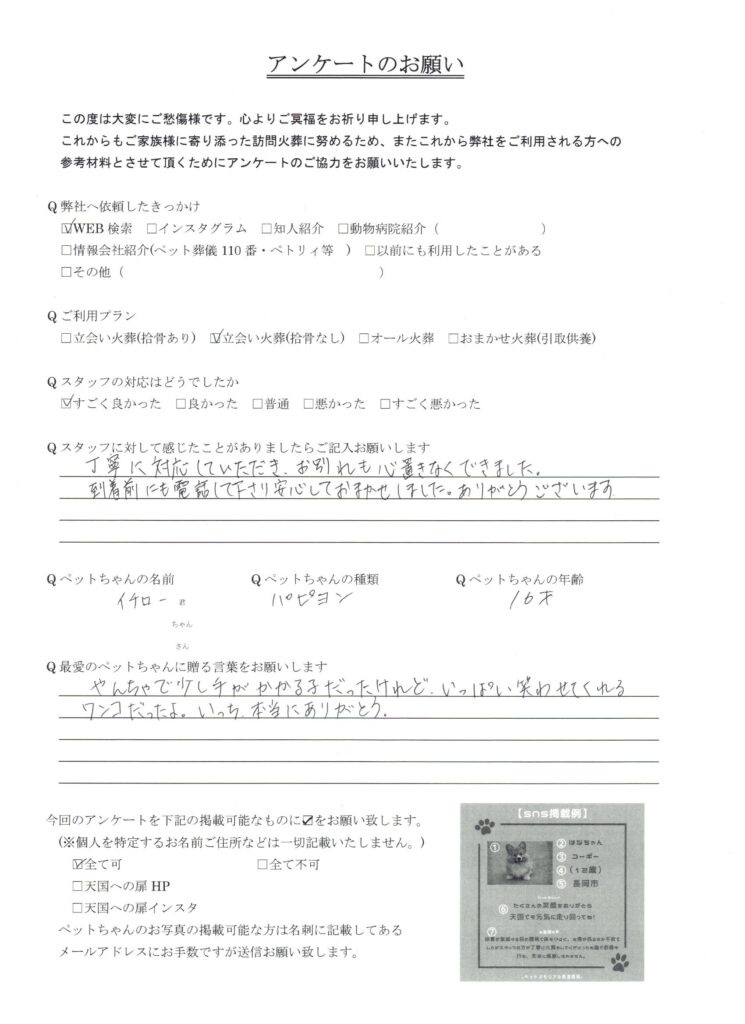 アンケートのお願い
この度は大変にご愁傷様です。心よりご冥福をお祈り申し上げます。
これからもご家族様に寄り添った訪問火葬に努めるため、またこれから弊社をご利用される方への
参考材料とさせて頂くためにアンケートのご協力をお願いいたします。
Q 弊社へ依頼したきっかけ
☑WEB 検索 □インスタグラム □知人紹介 □動物病院紹介（ ）
□情報会社紹介(ペット葬儀 110 番・ペトリィ等 ) □以前にも利用したことがある
□その他（ ）
Q ご利用プラン
□立会い火葬(拾骨あり) ☑立会い火葬(拾骨なし) □オール火葬 □おまかせ火葬(引取供養)
Q スタッフの対応はどうでしたか
☑すごく良かった □良かった □普通 □悪かった □すごく悪かった
Q スタッフに対して感じたことがありましたらご記入お願いします
丁寧に対応していただき、お別れも心置きなくできました。
到着前にも電話して下さり安心しておまかせしました。ありがとうございます
Q ペットちゃんの名前 Q ペットちゃんの種類 Q ペットちゃんの年齢
イチロー 君 パピヨン 16才
ちゃん
さん
Q 最愛のペットちゃんに贈る言葉をお願いします
やんちゃで少し手がかかる子だったけれど、いっぱい笑わせてくれる
ワンコだったよ。いっち、本当にありがとう。
今回のアンケートを下記の掲載可能なものに☑をお願い致します。
(※個人を特定するお名前ご住所などは一切記載いたしません。)
☑全て可 □全て不可
□天国への扉 HP
□天国への扉インスタ
ペットちゃんのお写真の掲載可能な方は名刺に記載してある
メールアドレスにお手数ですが送信お願い致します。
【sns掲載例】
①
② はなちゃん
③ コーギー
④ (12歳)
⑤ 長岡市
⑥ たくさんの笑顔をありがとう
天国でも元気に走り回ってね!
⑦